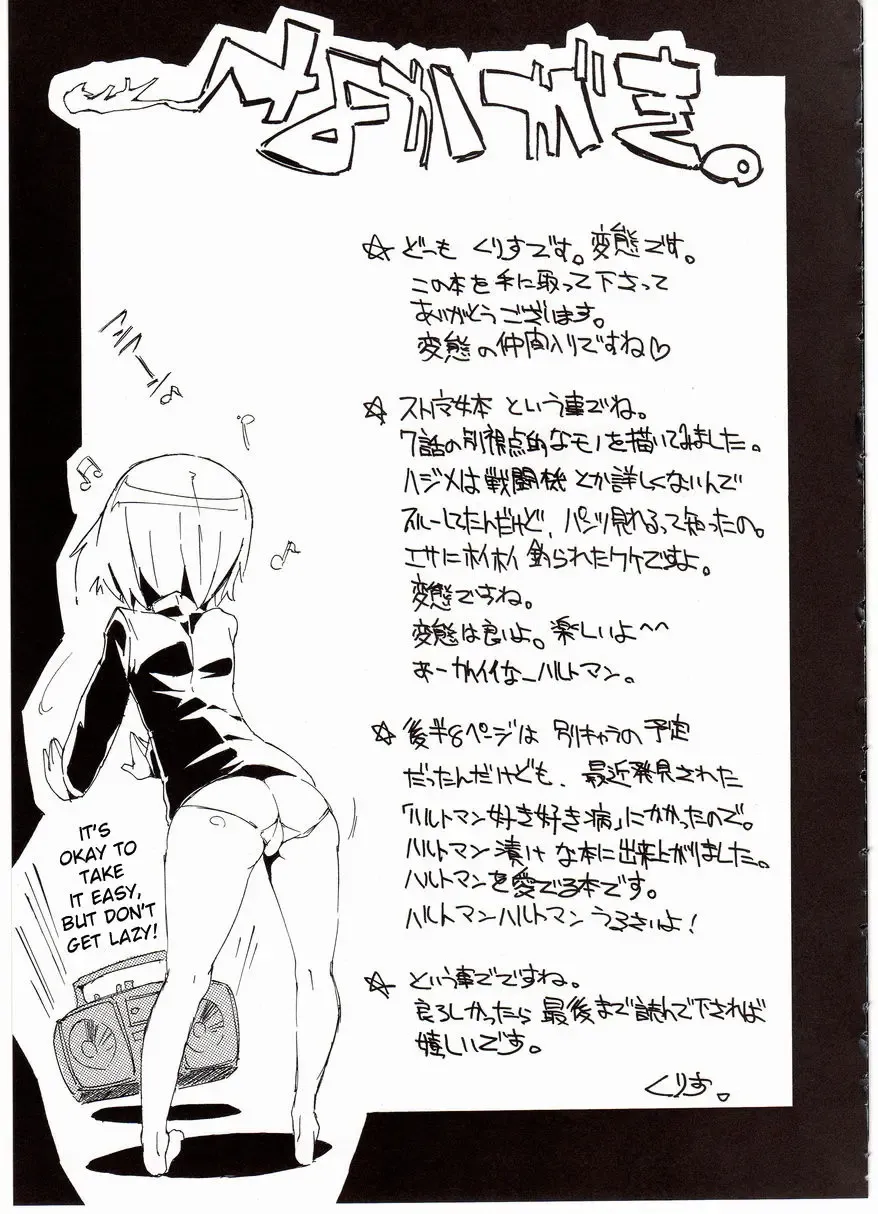 なかがき。
☆ どーも くりすです。変態です。
この本を手に取って下さって
ありがとうございます。
変態の仲間入りですね♡
☆ ストパン本 という事でね。
7話の別視点的なモノを描いてみました。
ハジメは戦闘機とか詳しくないんで
スルーしてたんだけど、パンツ見れるって知ったの。
エサにホイホイ釣られたワケですよ。
変態ですね。
変態は良いよ。楽しいよ〜〜
あーかわイイなーハルトマン。
☆ 後半8ページは 別キャラの予定
だったんだけども、最近発見された
「ハルトマン好き好き病」にかかったので。
ハルトマン漬けな本に出来上がりました。
ハルトマンを愛でる本です。
ハルトマンハルトマンうるさいよ!
☆ という事でですね。
良ろしかったら最後まで読んで下されば
嬉しいです。
くりす。
IT'S
OKAY TO
TAKE
IT EASY,
BUT DON'T
GET LAZY!